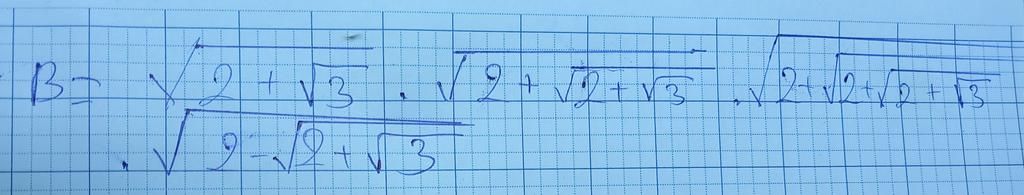 B = √(2 + √3) . √(2 + √(2 + √3)) . √(2 + √(2 + √(2 + √3)))
. √(2 - √(2 + √3))